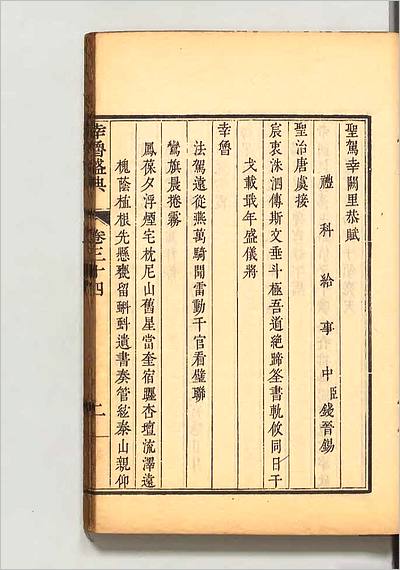 聖駕幸闕里恭賦
禮科給事中臣錢晉錫
聖治唐虞接
宸衷洙泗傳斯文垂斗極吾道絶蹄筌書軌攸同日干
戈載戢年盛儀將
幸魯
法駕遠從燕萬騎聞雷動千官看璧聯
鸞旗晨捲霧
鳳葆夕浮煙宅枕尼山舊星當奎宿躔杏壇流澤遠
槐蔭植根先懸甕留蝌蚪遺書奏管絃泰山親仰
幸魯盛典
卷三十四
二